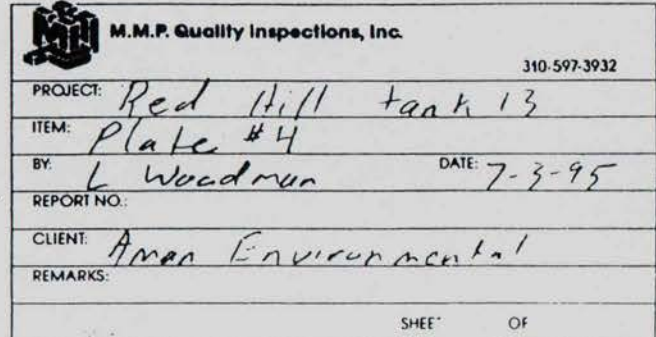 M.M.P. Quality Inspections, Inc.
310-597-3932
PROJECT: Red Hill tank 13
ITEM: Plate #4
BY: L Woodman DATE: 7-3-95
REPORT NO.:
CLIENT: Aman Environmental
REMARKS:
SHEET OF